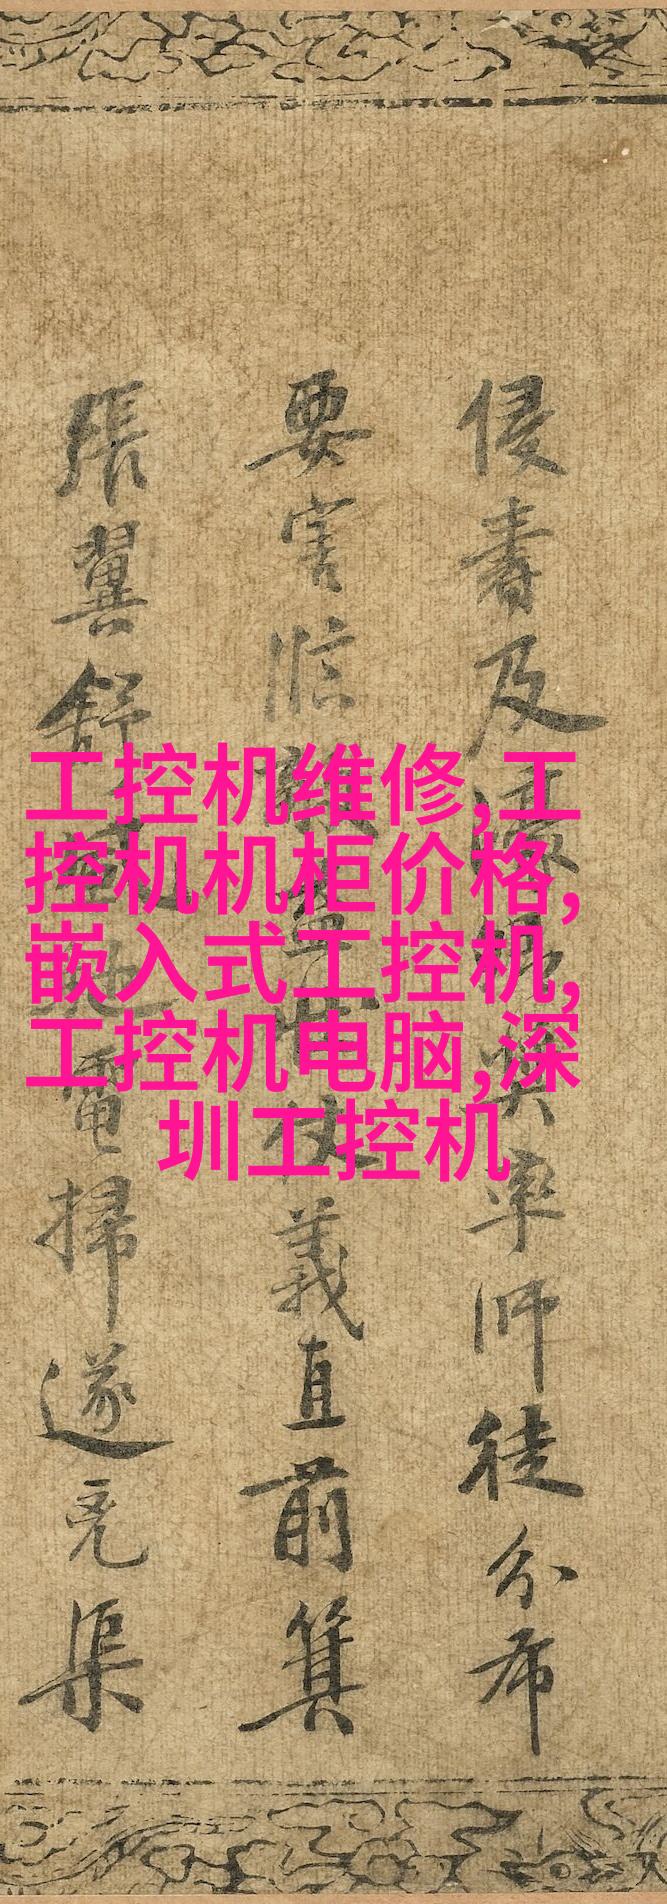 侵壽及濠 率師徒分布
要害臨敵 仗義直前箕
張翼舒 電掃遂克渠
工控机维修,工
控机机柜价格,
嵌入式工控机,
工控机电脑,深
圳工控机